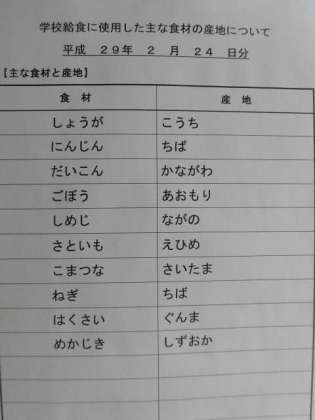 学校給食に使用した主な食材の産地について
平成 29年 2 月 24 日分
【主な食材と産地】
食 材 産 地
しょうが こうち
にんじん ちば
だいこん かながわ
ごぼう あおもり
しめじ ながの
さといも えひめ
こまつな さいたま
ねぎ ちば
はくさい ぐんま
めかじき しずおか